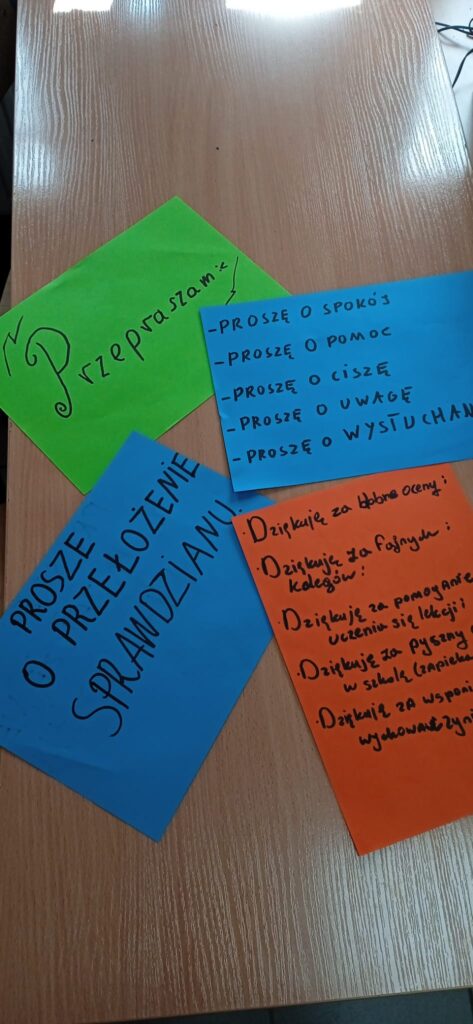 Przepraszam:<
-PROSZĘ O SPOKÓJ
-PROSZĘ O POMOC
-PROSZĘ O CISZĘ
-PROSZĘ O UWAGĘ
-PROSZĘ O WYSŁUCHAN
PROSZE
O PRZEŁOŻENIE
SPRAWDZIANU.
·Dziękuję za dobre oceny;
·Dziękuję za fajnych
kolegów;
·Dziękuję za
uczenia się lekcji;
·Dziękuję za Pyszny
w szkolę (zapieka
·Dziękuję za wspani